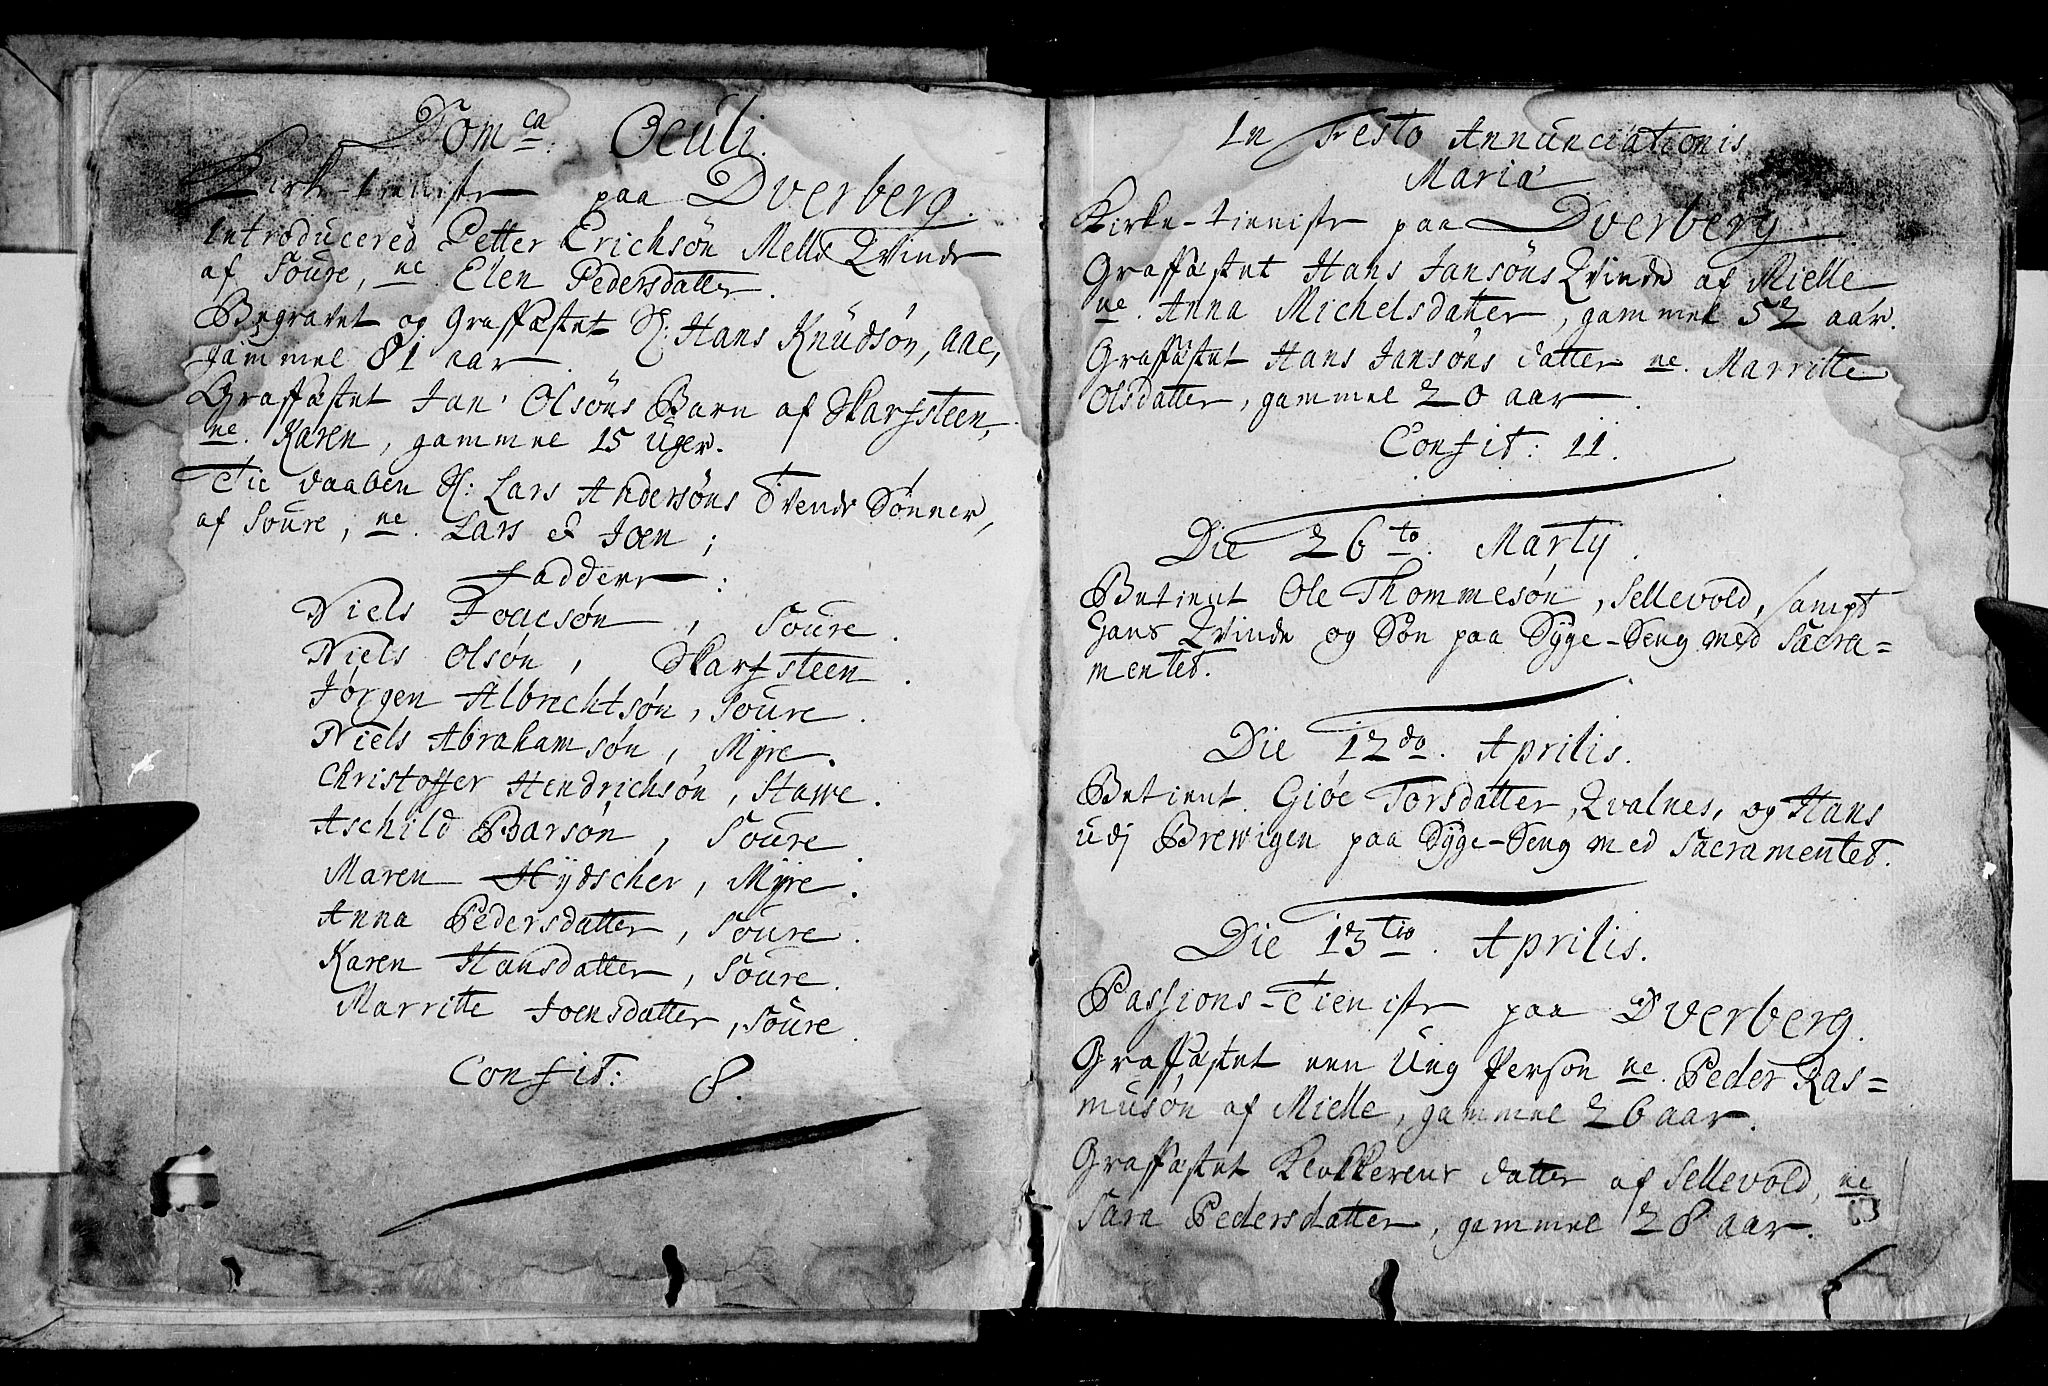 Dom̲ca̲: Oculi.
Kirke-tieniste paa Dverberg.
Introducered Petter Erichsøn Mells Qvinde
af Soure, ne. Elen Pedersdatter.
Begravet og Graffæstet Sl: Hans Knudsøn, Aae,
gammel 81 aar.
Graffæstet Jan Olsøns Barn af Skarfsteen,
ne. Karen, gammel 15 Uger.
Til daaben H: Lars Andersøns Tvende Sønner,
af Soure, ne. Lars & Joen;
Faddere:
Niels Joensøn, Soure.
Niels Olsøn, Skarfsteen.
Jørgen Albrechtsøn, Soure.
Niels Abrahamsøn, Myre.
Christoffer Hendrichsøn, Stawe.
Aschild Barsøn, Soure.
Maren Hydscher, Myre.
Anna Pedersdatter, Soure.
Karen Hansdatter, Soure.
Marritte Joensdatter, Soure.
Confit: 8.
In Festo Annunciationis
Mariæ
Kirke-tieniste paa Dverberg.
Graffæstet Hans Jansøns Qvinde af Mielle
ne. Anna Michelsdatter, gammel 52 aar.
Graffæstet Hans Jansøns datter ne. Marritte
Olsdatter, gammel 20 aar.
Confit: 11.
Die 26to. Martij.
Betient Ole Thommesøn, Sellevold, sampt
hans Qvinde og Søn paa Syge-Seng med Sacra=
mentet.
Die 12do. Aprilis.
Betient Giøe Torsdatter, Qvalnes, og Hans
udj Brewigen paa Syge-Seng med Sacramentet.
Die 13tio. Aprilis.
Passions-Tieniste paa Dverberg.
Graffæstet een Ung Person ne. Peder Ras=
musøn af Mielle, gammel 26 aar.
Graffæstet Klokkerens datter af Sellevold, ne
Sara Pedersdatter, gammel 28 aar.